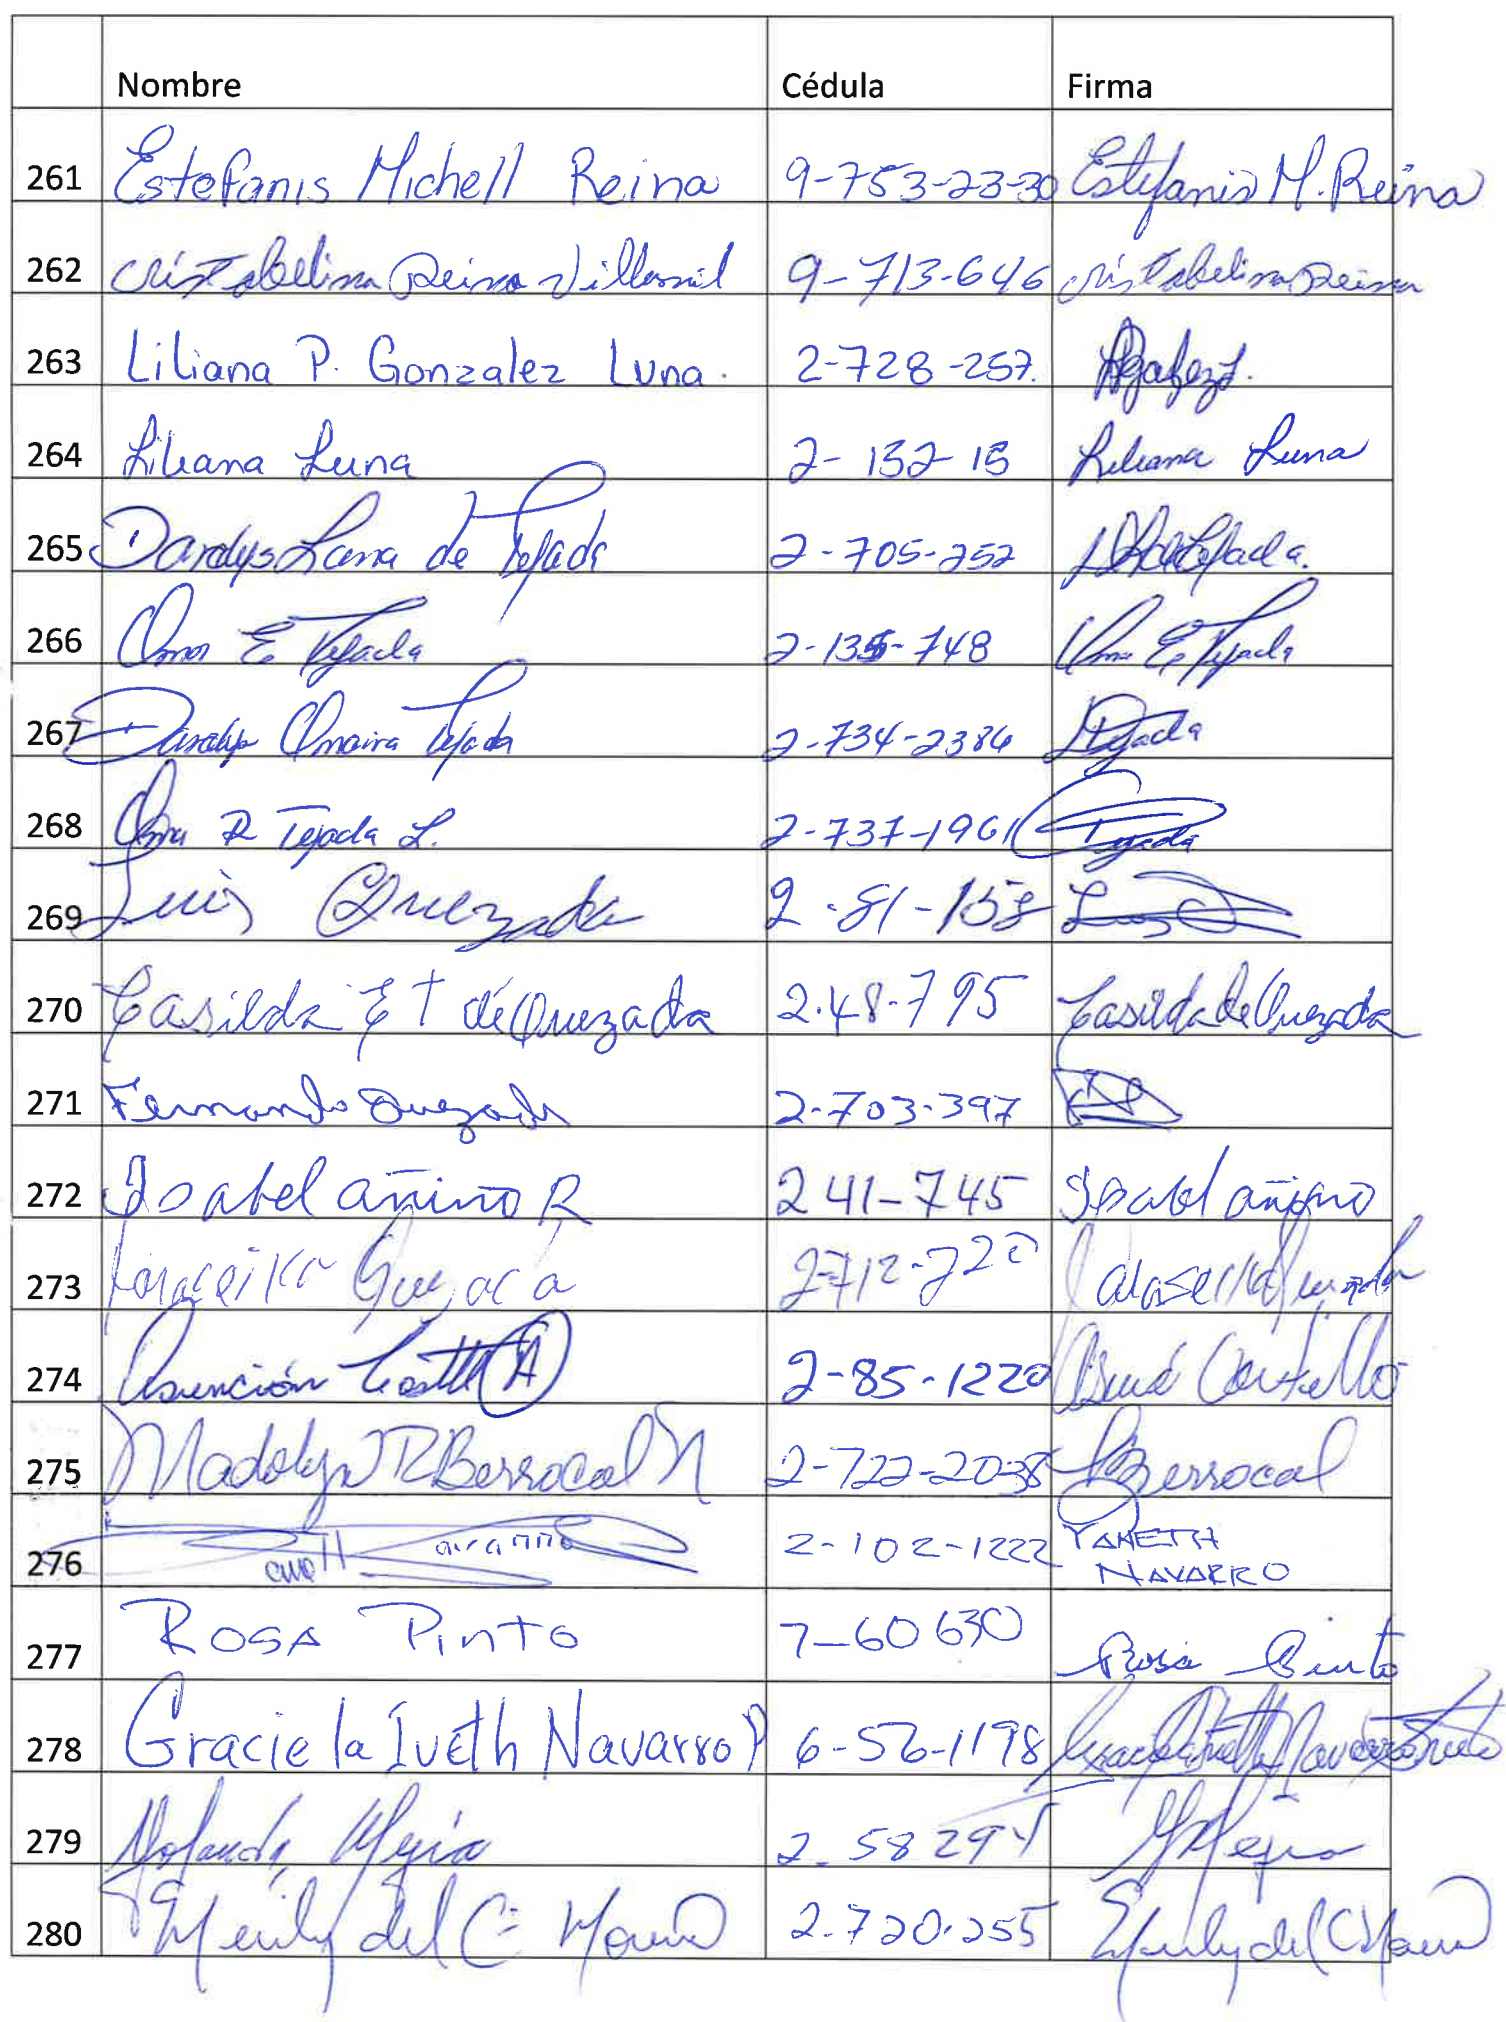 Nombre Cédula Firma
261 Estefanis Michell Reina 9-753-23-30 Estefanis M. Reina
262 Cristabelina Reina Villarreal 9-713-646 Cristabelina Reina
263 Liliana P. Gonzalez Luna. 2-728-257.
264 Liliana Luna 2-132-15 Liliana Luna
265 Dardys Luna de Tejada 2-705-252 Tejada.
266 Omar E Tejada 2-135-748 Omar E Tejada
267 Dardys Omaira Tejada 2-734-2386 Tejada
268 Omar R Tejada L. 2-737-1961 Tejada
269 Luis Quezada 2-81-158 Luis
270 Casilda E T de Quezada 2.48-795 Casilda de Quezada
271 Fernando Quezada 2-703-397
272 Isabel añino R 2 41-745 Isabel añino
273 2-712-722
274 Asunción 2-85-1220 Castillo
275 Madelyn R Berrocal N 2-722-2038 Berrocal
276 2-102-1222 YANETH
NAVARRO
277 ROSA PINTO 7-60 630 Rosa Pinto
278 Graciela Iveth Navarro P 6-56-1198 Navarro Pinto
279 Yolanda Mejía 2-58 294 Y Mejía
280 del C. 2.720.255 del C